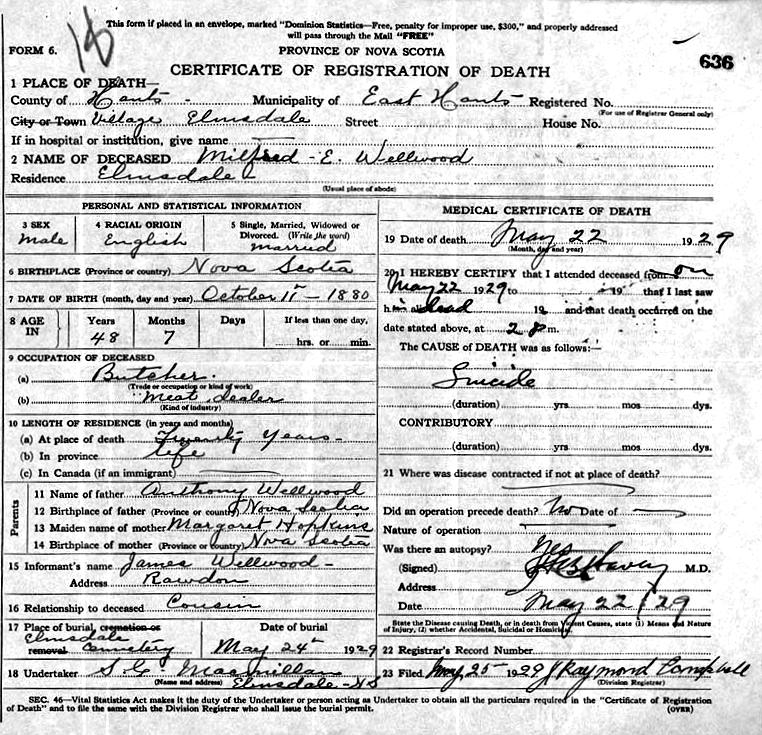 This form if placed in an envelope, marked "Dominion Statistics—Free, penalty for improper use, $300," and properly addressed
will pass through the Mail "FREE"
FORM 6.
PROVINCE OF NOVA SCOTIA
636
CERTIFICATE OF REGISTRATION OF DEATH
1 PLACE OF DEATH—
County of Hants Municipality of East Hants Registered No.
(For use of Registrar General only)
City or Town Village Elmsdale Street House No.
If in hospital or institution, give name
2 NAME OF DECEASED Milfred E. Wellwood
Residence Elmsdale
(Usual place of abode)
PERSONAL AND STATISTICAL INFORMATION
3 SEX Male
4 RACIAL ORIGIN English
5 Single, Married, Widowed or Divorced. (Write the word) Married
6 BIRTHPLACE (Province or country) Nova Scotia
7 DATE OF BIRTH (month, day and year) October 11 - 1880
8 AGE IN Years 48 Months 7 Days If less than one day, hrs. or min.
9 OCCUPATION OF DECEASED
(a) Butcher.
(Trade or occupation or kind of work)
(b) Meat dealer
(Kind of industry)
10 LENGTH OF RESIDENCE (in years and months)
(a) At place of death Twenty Years -
(b) In province life
(c) In Canada (if an immigrant)
Parents
11 Name of father Anthony Wellwood
12 Birthplace of father (Province or country) Nova Scotia
13 Maiden name of mother Margaret Hopkins
14 Birthplace of mother (Province or country) Nova Scotia
15 Informant's name James Wellwood -
Address Rawdon
16 Relationship to deceased Cousin
17 Place of burial, cremation or removal Elmsdale Cemetery
Date of burial May 24th 1929
18 Undertaker S. C. Macmillan
(Name and address) Elmsdale - NS
MEDICAL CERTIFICATE OF DEATH
19 Date of death May 22 1929
(Month, day and year)
20 I HEREBY CERTIFY that I attended deceased from on
May 22 1929 to 19 that I last saw
h dead 19 and that death occurred on the
date stated above, at 2 m.
The CAUSE of DEATH was as follows:—
Suicide
(duration) yrs mos dys.
CONTRIBUTORY
(duration) yrs mos dys.
21 Where was disease contracted if not at place of death?
Did an operation precede death? No Date of
Nature of operation
Was there an autopsy? Yes
(Signed) M.D.
Address
Date May 22 / 29
State the Disease causing Death, or in death from Violent Causes, state (1) Means and Nature
of Injury, (2) whether Accidental, Suicidal or Homicidal.
22 Registrar's Record Number
23 Filed May 25 1929 J Raymond Campbell
(Division Registrar)
SEC. 46—Vital Statistics Act makes it the duty of the Undertaker or person acting as Undertaker to obtain all the particulars required in the "Certificate of Registration
of Death" and to file the same with the Division Registrar who shall issue the burial permit.
(OVER)